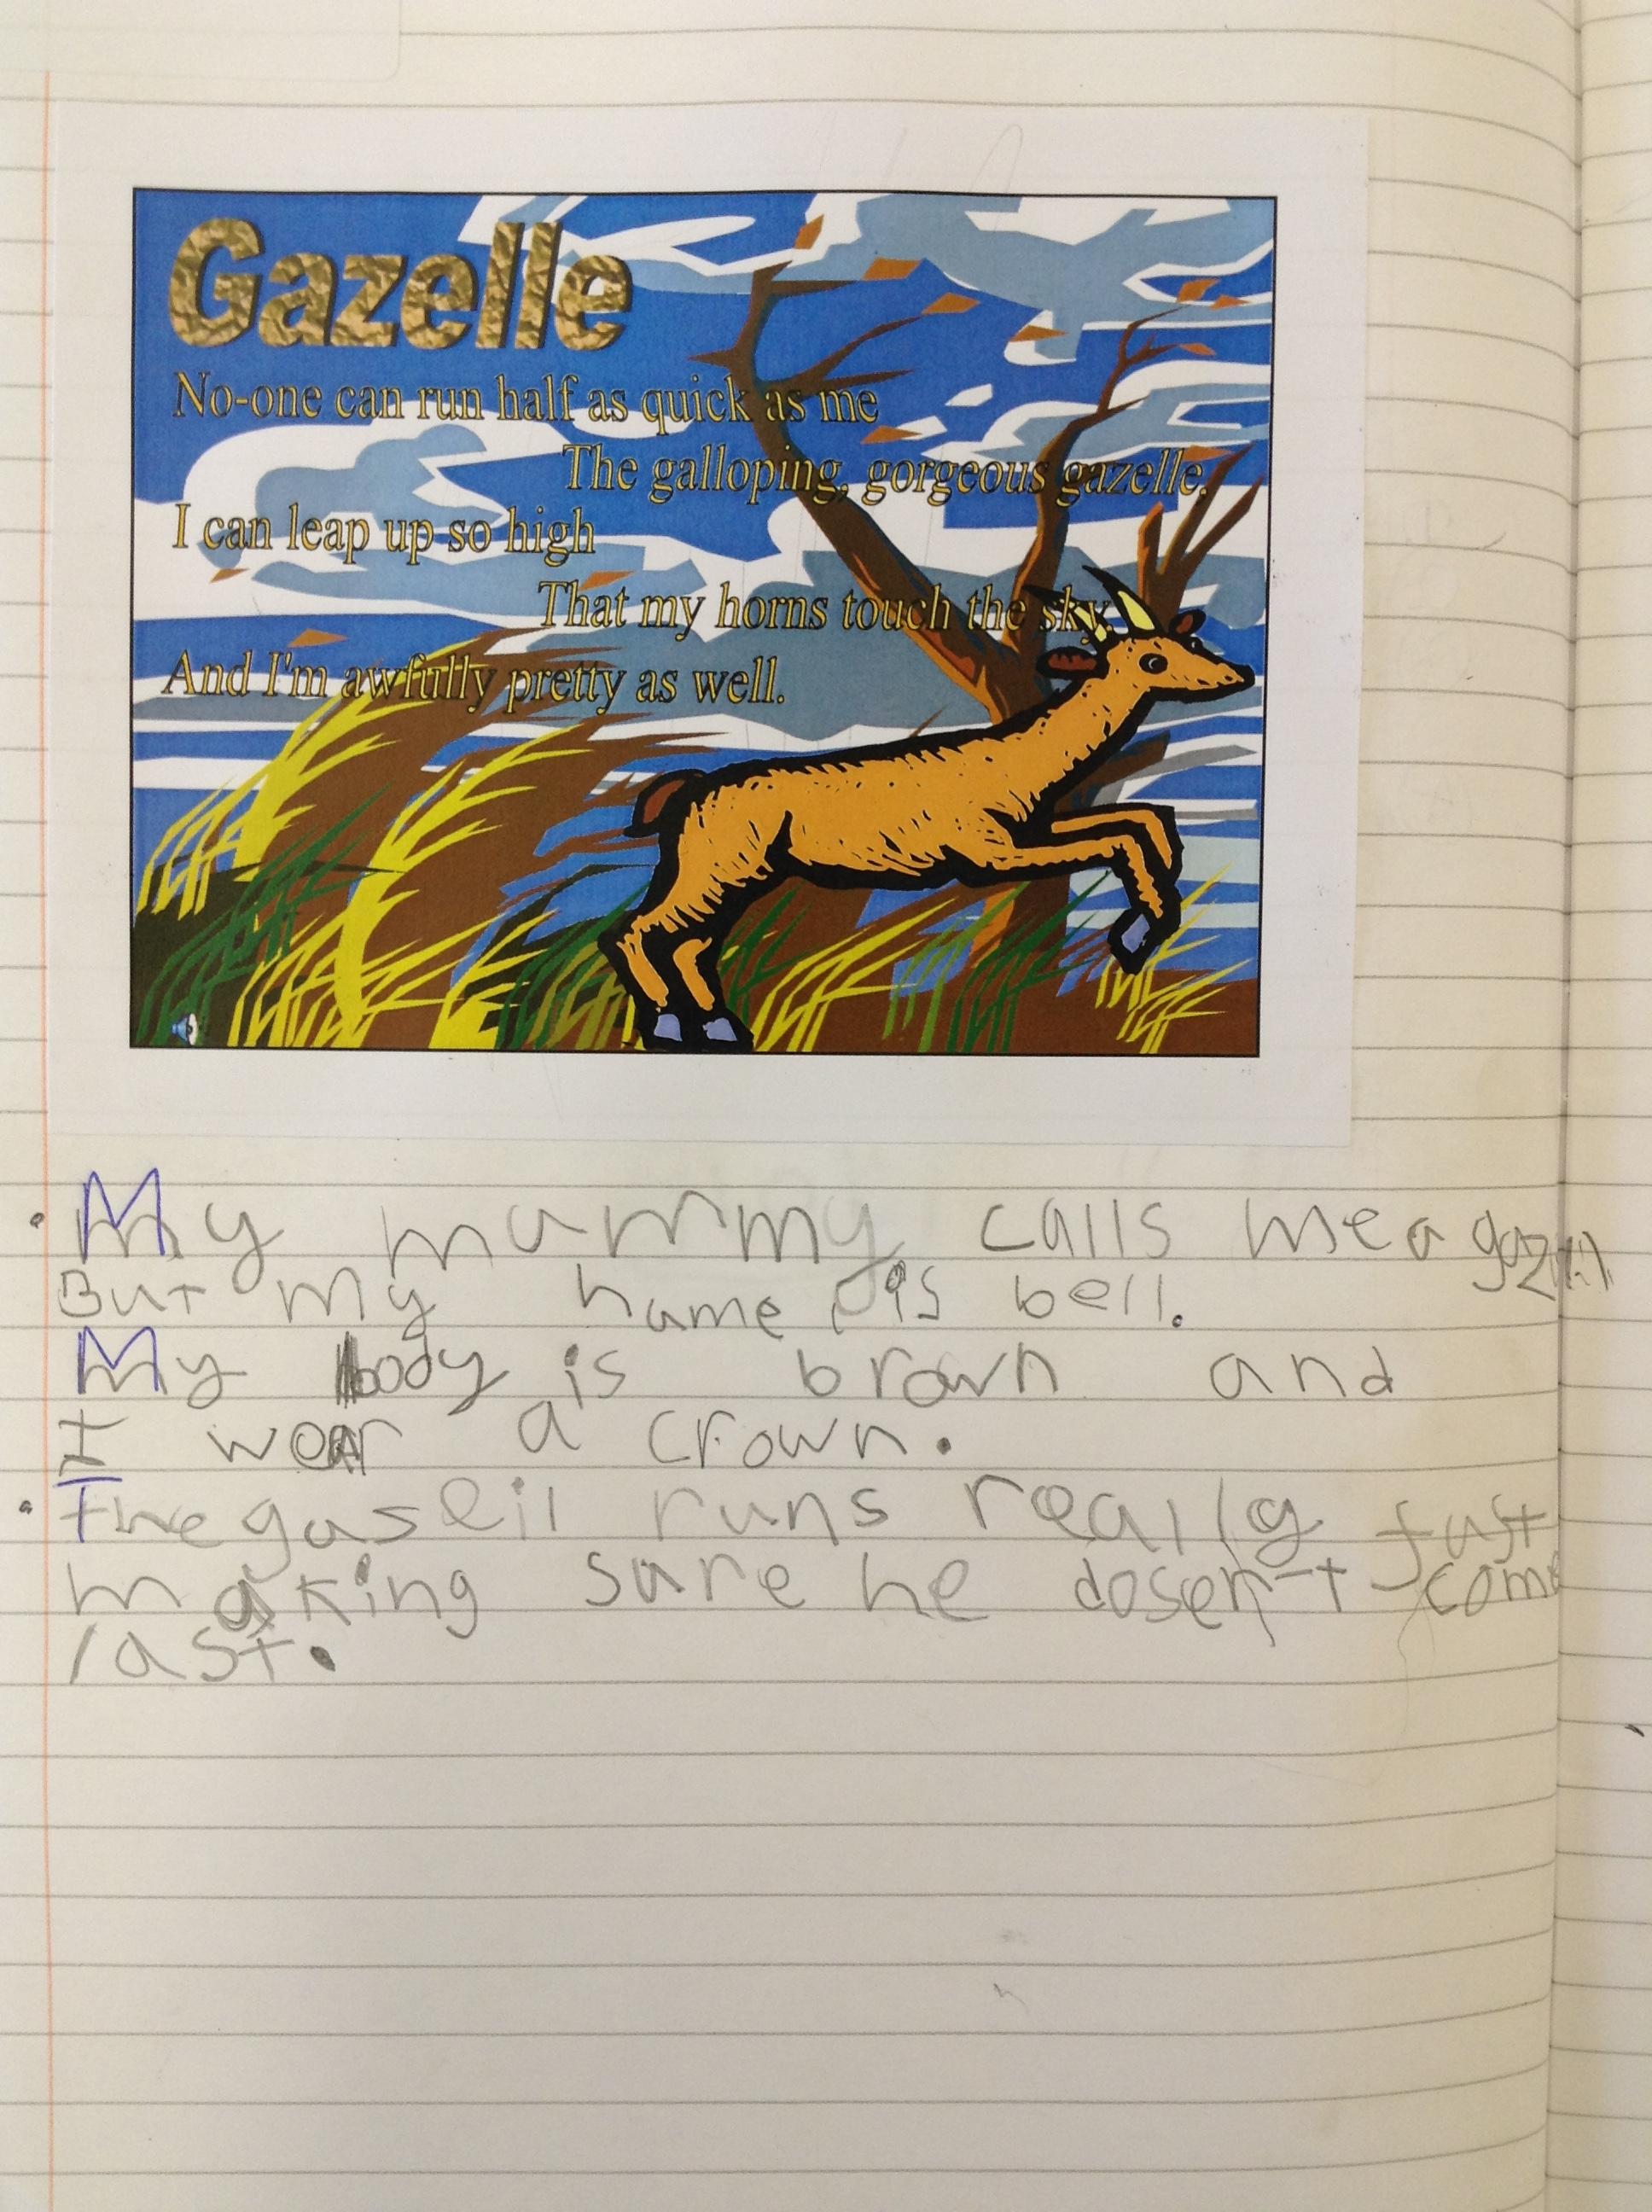 Gazelle
No-one can run half as quick as me
The galloping, gorgeous gazelle.
I can leap up so high
That my horns touch the sky.
And I'm awfully pretty as well.
My mummy calls me a
But my name is bell.
My body is brown and
I wear a crown.
The gaseil runs really fast
making sure he dosen-t come
last.